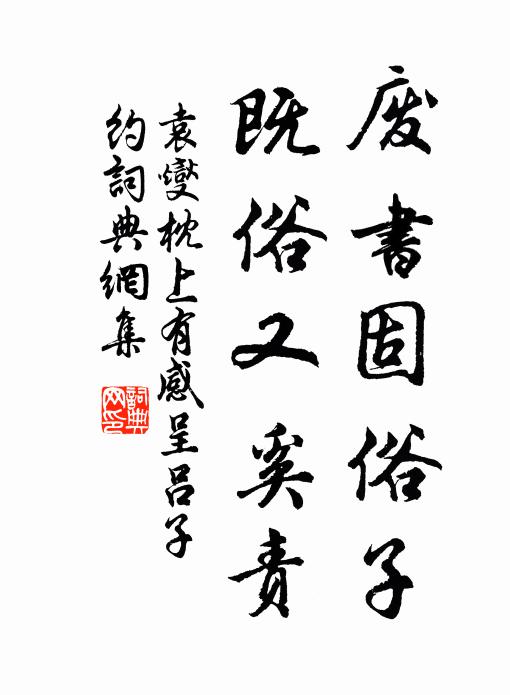 废书固俗子
既俗又奚责
袁燮枕上有感呈吕子
约词典網集
詞典
网印